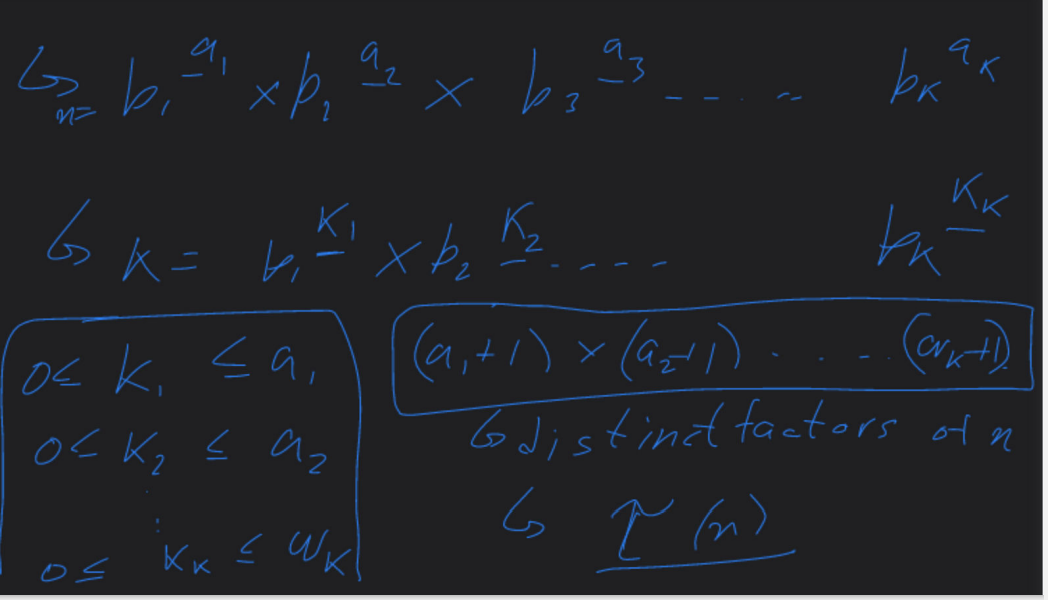 ↳ n= b₁^a₁ × b₂^a₂ × b₃^a₃ ----- bₖ^aₖ
↳ k = b₁^K₁ × b₂^K₂ ----- bₖ^Kₖ
0≤ K₁ ≤ a₁
0≤ K₂ ≤ a₂
⋮
0≤ Kₖ ≤ aₖ
(a₁+1) × (a₂+1) ..... (aₖ+1)
↳ distinct factors of n
↳ τ(n)